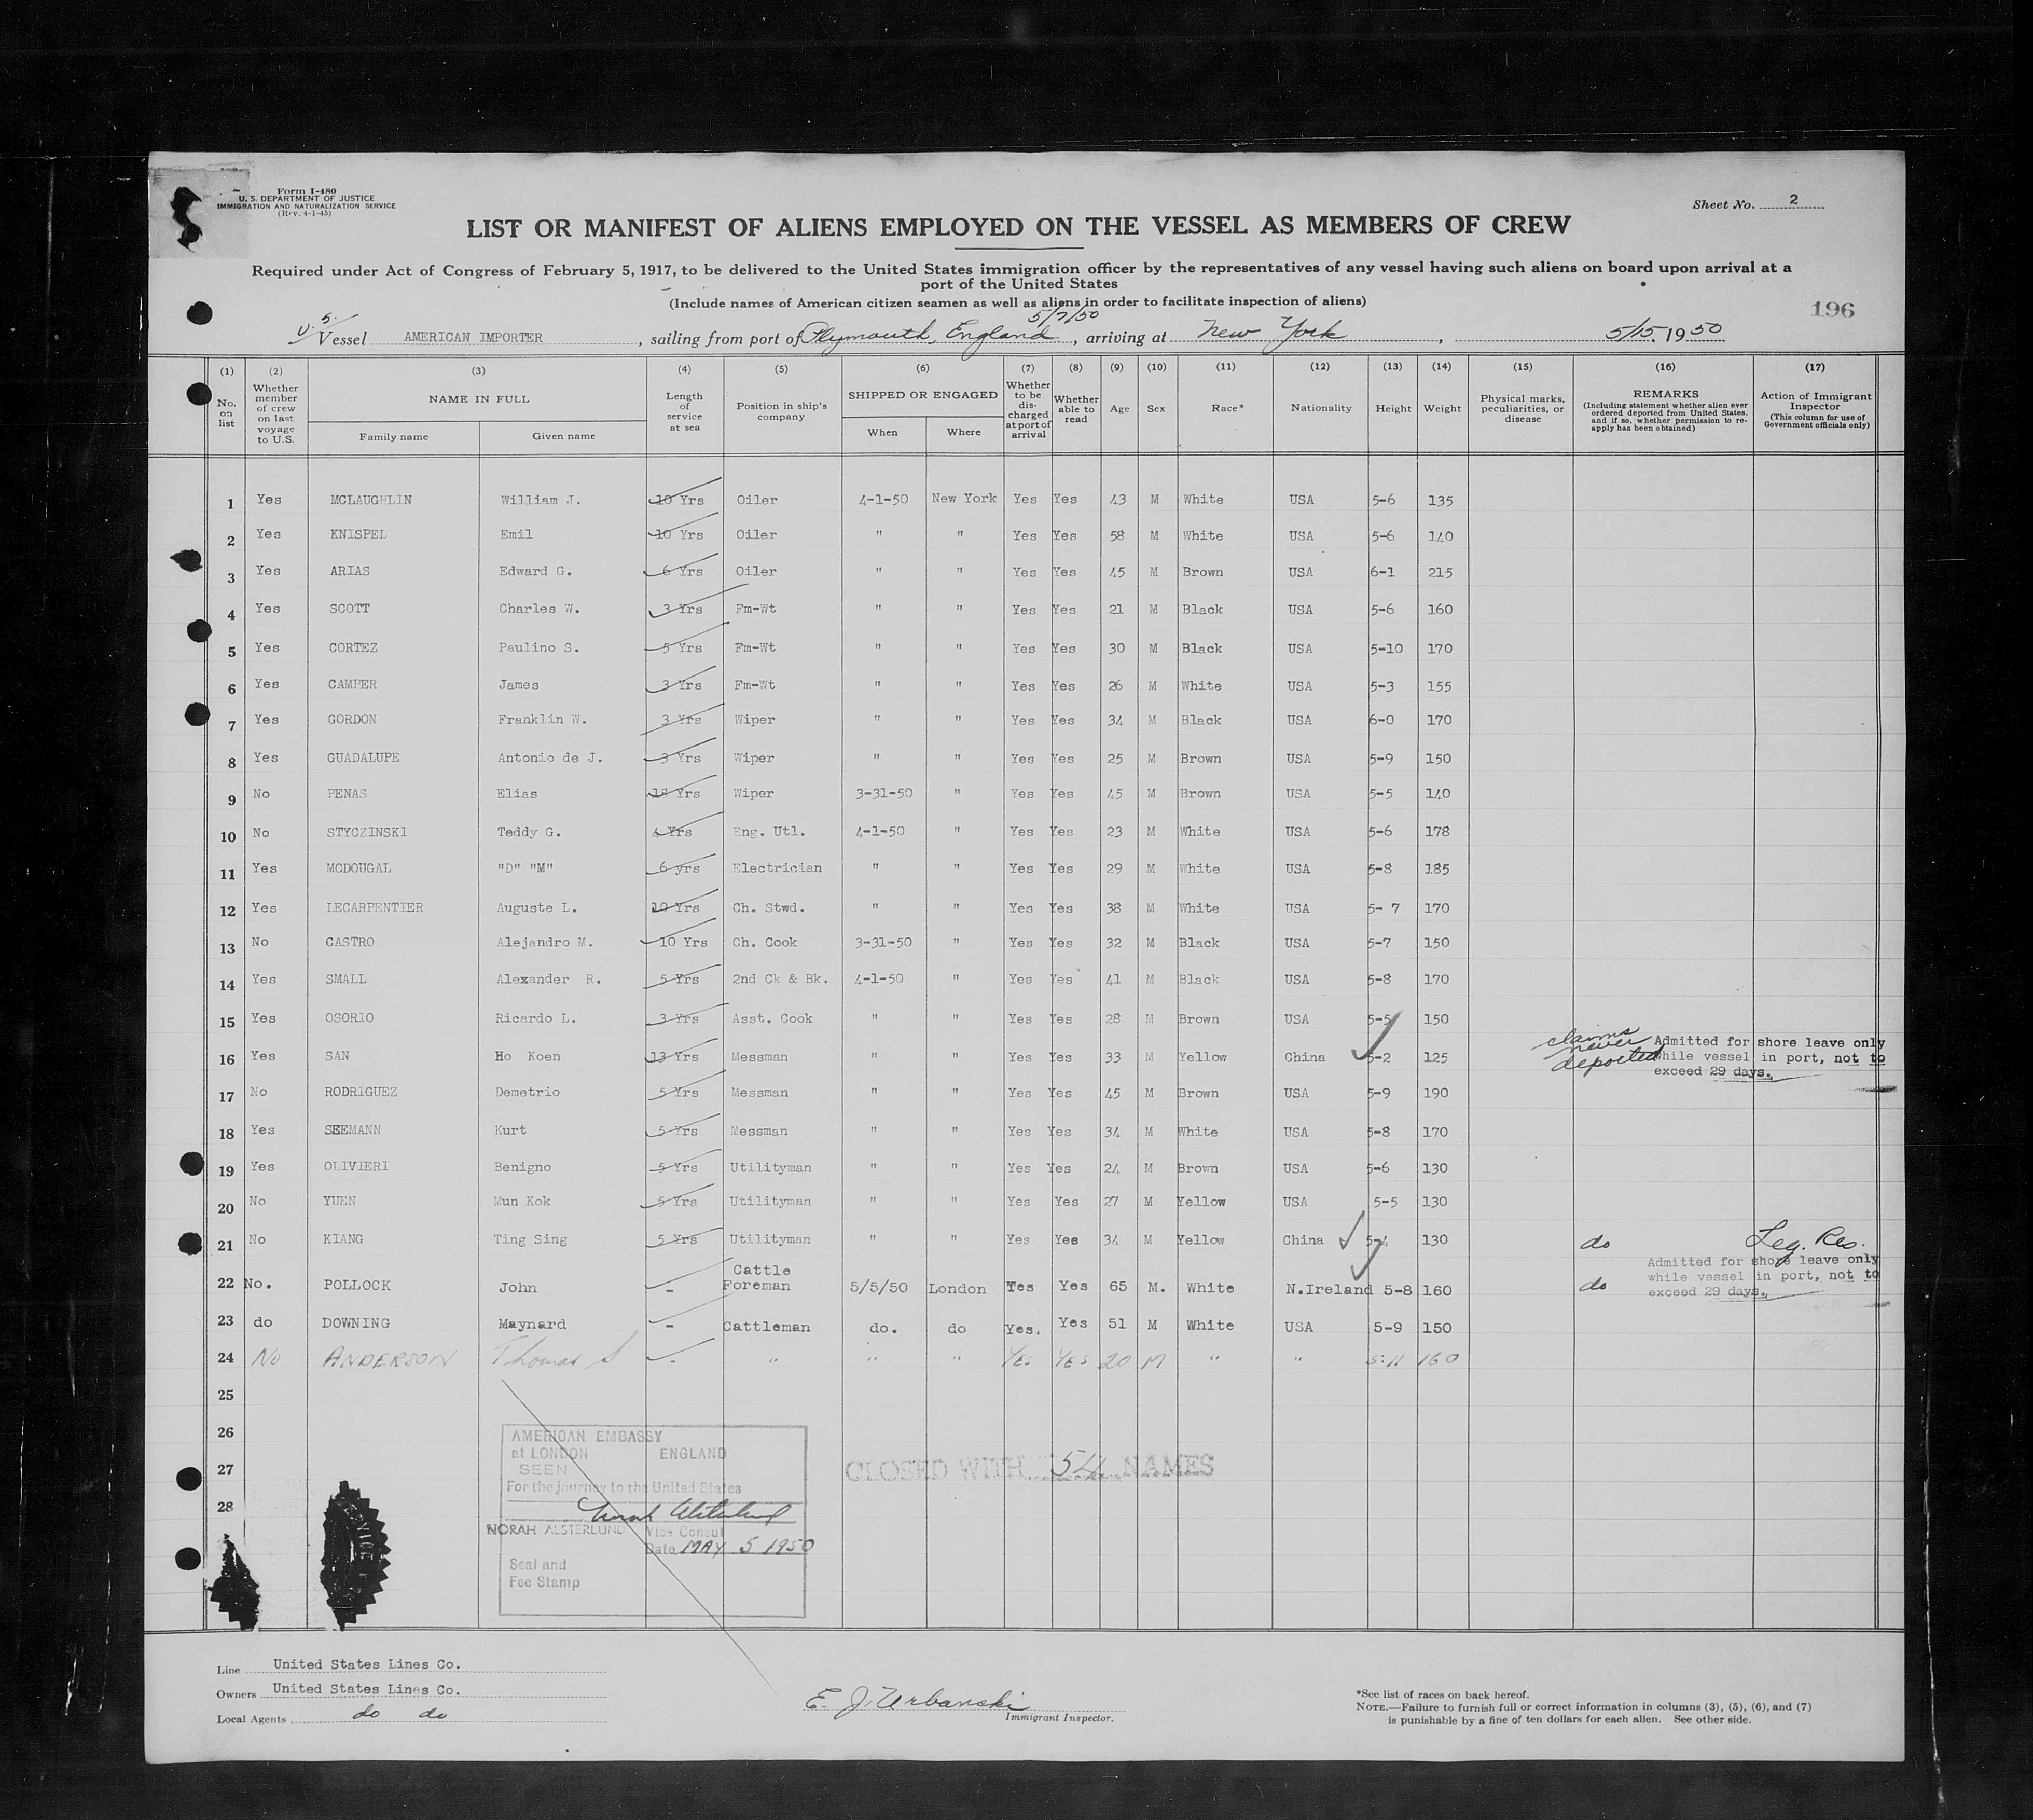 Form I-480
U. S. DEPARTMENT OF JUSTICE
IMMIGRATION AND NATURALIZATION SERVICE
(Rev. 4-1-45)
Sheet No. 2
LIST OR MANIFEST OF ALIENS EMPLOYED ON THE VESSEL AS MEMBERS OF CREW
Required under Act of Congress of February 5, 1917, to be delivered to the United States immigration officer by the representatives of any vessel having such aliens on board upon arrival at a
port of the United States
(Include names of American citizen seamen as well as aliens in order to facilitate inspection of aliens)
196
5/7/50
U.S. Vessel AMERICAN IMPORTER, sailing from port of Plymouth, England, arriving at New York, 5/15, 1950
(1) (2) (3) (4) (5) (6) (7) (8) (9) (10) (11) (12) (13) (14) (15) (16) (17)
No. on list
Whether member of crew on last voyage to U.S.
NAME IN FULL
Family name Given name
Length of service at sea
Position in ship's company
SHIPPED OR ENGAGED
When Where
Whether to be discharged at port of arrival
Whether able to read
Age
Sex
Race*
Nationality
Height
Weight
Physical marks, peculiarities, or disease
REMARKS
(Including statement whether alien ever ordered deported from United States, and if so, whether permission to reapply has been obtained)
Action of Immigrant Inspector
(This column for use of Government officials only)
1 Yes MCLAUGHLIN William J. 10 Yrs Oiler 4-1-50 New York Yes Yes 43 M White USA 5-6 135
2 Yes KNISPEL Emil 10 Yrs Oiler " " Yes Yes 58 M White USA 5-6 140
3 Yes ARIAS Edward G. 6 Yrs Oiler " " Yes Yes 45 M Brown USA 6-1 215
4 Yes SCOTT Charles W. 3 Yrs Fm-Wt " " Yes Yes 21 M Black USA 5-6 160
5 Yes CORTEZ Paulino S. 5 Yrs Fm-Wt " " Yes Yes 30 M Black USA 5-10 170
6 Yes CAMPER James 3 Yrs Fm-Wt " " Yes Yes 26 M White USA 5-3 155
7 Yes GORDON Franklin W. 3 Yrs Wiper " " Yes Yes 34 M Black USA 6-0 170
8 Yes GUADALUPE Antonio de J. 3 Yrs Wiper " " Yes Yes 25 M Brown USA 5-9 150
9 No PENAS Elias 18 Yrs Wiper 3-31-50 " Yes Yes 45 M Brown USA 5-5 140
10 No STYCZINSKI Teddy G. 4 Yrs Eng. Utl. 4-1-50 " Yes Yes 23 M White USA 5-6 178
11 Yes MCDOUGAL "D" "M" 6 yrs Electrician " " Yes Yes 29 M White USA 5-8 185
12 Yes LECARPENTIER Auguste L. 10 Yrs Ch. Stwd. " " Yes Yes 38 M White USA 5- 7 170
13 No CASTRO Alejandro M. 10 Yrs Ch. Cook 3-31-50 " Yes Yes 32 M Black USA 5-7 150
14 Yes SMALL Alexander R. 5 Yrs 2nd Ck & Bk. 4-1-50 " Yes Yes 41 M Black USA 5-8 170
15 Yes OSORIO Ricardo L. 3 Yrs Asst. Cook " " Yes Yes 28 M Brown USA 5-5 150
16 Yes SAN Ho Koen 13 Yrs Messman " " Yes Yes 33 M Yellow China 5-2 125 claims never deported Admitted for shore leave only while vessel in port, not to exceed 29 days.
17 No RODRIGUEZ Demetrio 5 Yrs Messman " " Yes Yes 45 M Brown USA 5-9 190
18 Yes SEEMANN Kurt 5 Yrs Messman " " Yes Yes 34 M White USA 5-8 170
19 Yes OLIVIERI Benigno 5 Yrs Utilityman " " Yes Yes 24 M Brown USA 5-6 130
20 No YUEN Mun Kok 5 Yrs Utilityman " " Yes Yes 27 M Yellow USA 5-5 130
21 No KIANG Ting Sing 5 Yrs Utilityman " " Yes Yes 34 M Yellow China 5-4 130 do Leg. Res.
22 No. POLLOCK John - Cattle Foreman 5/5/50 London Yes Yes 65 M. White N.Ireland 5-8 160 do Admitted for shore leave only while vessel in port, not to exceed 29 days.
23 do DOWNING Maynard - Cattleman do. do Yes. Yes 51 M White USA 5-9 150
24 No ANDERSON Thomas S - " " " YES YES 20 M " " 5:11 160
25
26
27
28
AMERICAN EMBASSY
at LONDON ENGLAND
SEEN
For the journey to the United States
NORAH ALSTERLUND Vice Consul
Date MAY 5 1950
Seal and
Fee Stamp
CLOSED WITH 54 NAMES
Line United States Lines Co.
Owners United States Lines Co.
Local Agents do do
E. J. Urbanski
Immigrant Inspector.
*See list of races on back hereof.
NOTE.—Failure to furnish full or correct information in columns (3), (5), (6), and (7)
is punishable by a fine of ten dollars for each alien. See other side.